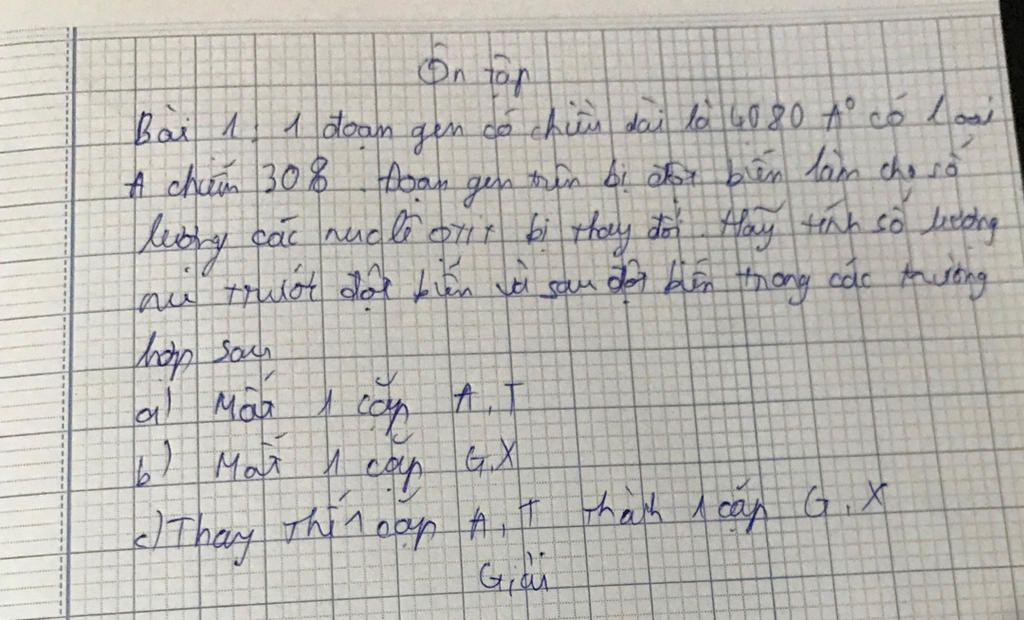 Ôn tập
Bài 1: 1 đoạn gen có chiều dài là 4080 A° có loại
A chiếm 30%. Đoạn gen trên bị đột biến làm cho số
lượng các nuclêôtit bị thay đổi. Hãy tính số lượng
nu trướt đột biến và sau đột biến trong các trường
hợp sau
a) Mất 1 cặp A, T
b) Mất 1 cặp G, X
c) Thay thế 1 cặp A, T thành 1 cặp G, X
Giải